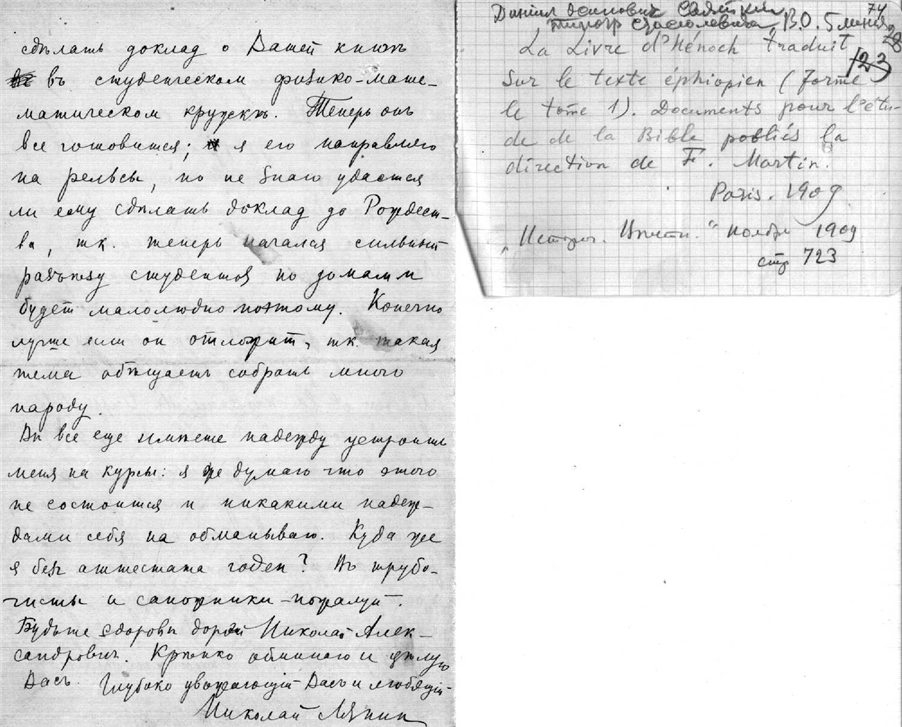 сдѣлать доклад о Вашей книгѣ
въ студенческом физико-мате-
матическом кружкѣ. Теперь онъ
все готовится; я его направляю
на рельсы, но не знаю удастся
ли ему сдѣлать доклад до Рождест-
ва, тк. теперь начался сильный
разъѣзд студентов по домам и
будет малолюдно поэтому. Конечно
лучше если он отложит, тк. такая
тема обѣщаетъ собрать много
народу.
Вы все еще имѣете надежду устроить
меня на курсы: я же думаю что этого
не состоится и никакими надеж-
дами себя не обманываю. Куда же
я без аттестата годен? Въ трубо-
чисты и сапожники – пожалуй.
Будьте здоровы дорогой Николай Алек-
сандрович. Крѣпко обнимаю и цѣлую
Васъ. Глубоко уважающій Васъ и любящій
Николай
Даниил Осипович Святский
В.О. 5 линия
74
28
123
La Livre d'Hénoch traduit
Sur le texte éphiopien (Forme
le tome 1). Documents pour l'étu-
de de la Bible publiés la
direction de F. Martin.
Paris. 1909
"Истор. Вѣстн." Ноябрь 1909
стр 723